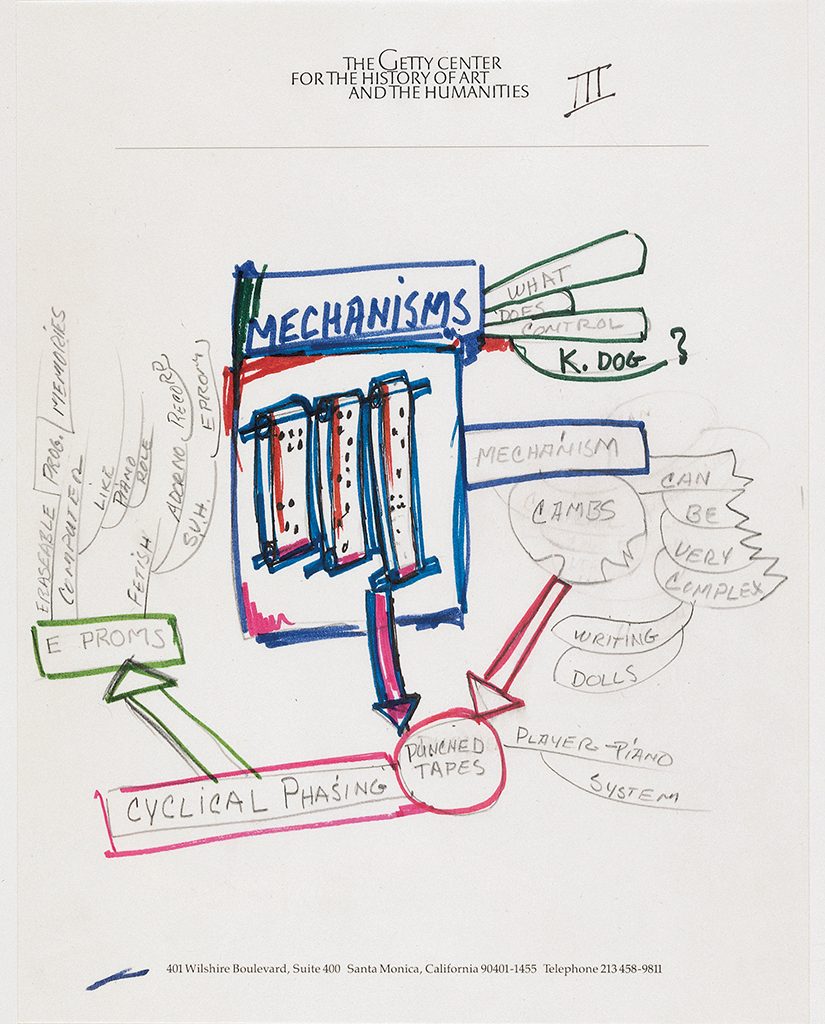 THE GETTY CENTER
FOR THE HISTORY OF ART
AND THE HUMANITIES
III
MECHANISMS
WHAT
DOES
CONTROL
K. DOG ?
MECHANISM
CAMBS
CAN
BE
VERY
COMPLEX
WRITING
DOLLS
ERASEABLE PROG. MEMORIES
COMPUTER
LIKE
PIANO
ROLE
FETISH
ADORNO RECORD
S.V.H. EPROMS
E PROMS
PUNCHED
TAPES
PLAYER-PIANO
SYSTEM
CYCLICAL PHASING
401 Wilshire Boulevard, Suite 400 Santa Monica, California 90401-1455 Telephone 213 458-9811